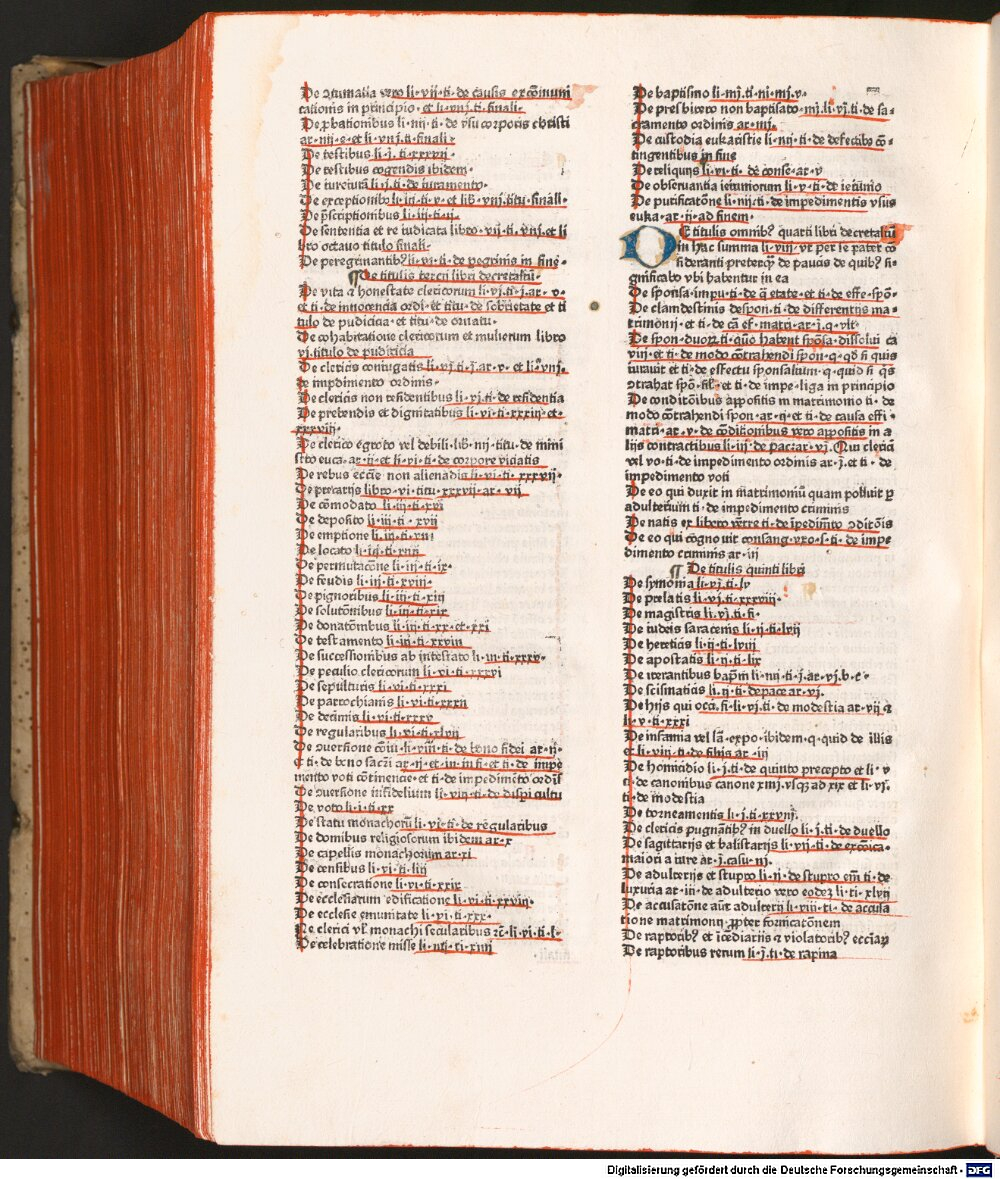 De ꝯtumatia vero li·vii·ti·de causis excōmuni
cationis in principio·et li·viij·ti·finali·
De ꝓbationibus li·iiij·ti·de vsu corporis christi
ar·iiij·
De testibus li·j·ti·xxxvij·
De testibus cogendis ibidem·
De iureiurā li·j·ti·de iuramento·
De exceptionibꝰ li·iij·ti·v·et lib·viij·titu·finali·
De p̄scriptionibus li·iij·ti·ij·
De sententia et re iudicata libro·vij·ti·viij·et li
bro octauo titulo finali·
De peregrinantibꝰ li·vi·ti·de pegrinis in fine·
¶De titulis tercij libri decretaliū·
De vita ⁊ honestate clericorum li·vj·ti·j·ar·v·
et ti·de innocencia ordi·et titu·de sobrietate et ti
tulo de pudicicia·et titu·de ornatu·
De cohabitatione clericorum et mulierum libro
vj·titulo de pudicicia
De clericis coniugatis li·vj·ti·j·ar·v·et li·viij·
de impdimento ordinis·
De clericis non residentibus li·vj·ti·de residentia
De prebendis et dignitatibus li·vi·ti·xxxiij·et·
xxxviij·
De clerico egroto vel debili·lib·iiij·titu·de mini
stro euca·ar·ij·et li·vi·ti·de corpore viciatis
De rebus eccīe non alienādis li·vi·ti·xxxvij·
De precarijs libro·vi·titu·xxxvij·ar·vij
De cōmodato li·iij·ti·xvi
De deposito li·iij·ti·xvij
De emptione li·iij·ti·
De locato li·iij·ti·
De permutacōne li·iij·ti·ix·
De feudis li·iij·ti·xviij·
De pignoribus li·iij·ti·xiij
De solutōnibus li·iij·ti·xix
De donatōnibus li·iij·ti·xx·et·xxi
De testamento li·iij·ti·xxviij
De successionibus ab intestato li·iij·ti·xxxv·
De peculio clericorum li·vi·ti·xxxvi
De sepulturis li·vi·ti·xxxi
De parrochianis li·vi·ti·xxxij
De decimis li·vi·ti·xxxv
De regularibus li·vi·ti·xlvij
De ꝯuersione cōiu·li·viij·ti·de bono fidei ar·ij·
⁊ ti·de bono sacrī ar·ij·et in·iij fi·et ti·de impe
mento voti cōtinencie·et ti·de impedimēto ordīs
De ꝯuersione infidelium li·viij·ti·de dispi cultu
De voto li·i·ti·xx
De statu monachorū li·vi·ti·de regularibus
De domibus religiosorum ibidem ar·x
De capellis monachorum ar·xi
De censibus li·vi·ti·liij
De consecratione li·vi·ti·xxix
De ecclesiarum edificatione li·vi·ti·xxviij·
De ecclesie emunitate li·vi·ti·xxx·
Ne clerici vl monachi secularibus ⁊c̄·li·vi·ti·l·
De celebratione misse li·iiij·ti·xviij
De baptismo li·iiij·ti·iij·iiij·v·
De presbitero non baptisato·iiij·li·vj·ti·de sa-
cramento ordinis ar·iiij·
De custodia eukaristie li·iiij·ti·de defectibꝰ cō-
tingentibus in fine
De reliquijs li·vi·ti·de conse·ar·v
De obseruantia ieiuniorum li·v·ti·de ieiunio
De purificatōne li·iiij·ti·de impedimentis vsus
euka·ar·ij·ad finem·
DE titulis omnibꝰ quarti libri decretaliū
in hac summa li·viij·vt per se patet cō
sideranti pretercꝙ de paucis de quibꝰ si-
gnificabo vbi habentur in ea
De sponsa·impu·ti·de q̄ etate·et ti·de effe·spō·
De clandestinis despon·ti·de differentijs ma-
trimonij·et ti·de cā ef·matri·ar·j·q·vlt·
De spon·duorꝝ ti·quō habent spōsa·dissolui cā
viij·et ti·de modo cōtrahendi spon·q·qd si quis
iurauit et ti·de effectu sponsalium·q·quid si q̄s
ꝯtrahat spō·fil·et ti·de impe·liga in principio
De condicōibus appositis in matrimonio ti·de
modo cōtrahendi spon·ar·ij·et ti·de causa effi-
matri·ar·v·de cōdicionibus vero appositis in a
lijs contractibus li·iij·de pac·ar·vj·Qui clerici
vel vo·ti·de impedimento ordinis ar·j·et ti·de
impedimento voti
De eo qui duxit in matrimoniū quam polluit ꝑ
adulterium ti·de impedimento criminis
De natis ex libero vētre ti·de īpedimēto ꝯdicōis
De eo qui cognouit consang·vxo·s·ti·de impe
dimento criminis ar·iij
¶ De titulis quinti libri
De symonia li·vj·ti·lv
De prelatis li·vj·ti·xxxviij·
De magistris li·vj·ti·fi·
De iudeis saracenis li·ij·ti·lvij
De hereticis li·ij·ti·lviij
De apostatis li·ij·ti·lix
De iterantibus bapsm li·iiij·ti·j·ar·vj·b·c·
De scismaticis li·ij·ti·de pace ar·vj·
De hijs qui occi·fi·li·vj·ti·de modestia ar·vij ⁊
li·v·ti·xxxi
De infantia vel lā·expo·ibidem·q·quid de illis
et li·viij·ti·de filijs ar·iij
De homicidio li·j·ti·de quinto precepto et li·v
ti·de canonibus canone xiiij·vsqꝫ ad xix et li·vj·
ti·de modestia
De torneamentis li·j·ti·xxviij·
De clericis pugnātibꝰ in duello li·j·ti·de duello
De sagittarijs et balistarijs li·vij·ti·de excōica-
maiori a iure ar·j·casu·iij·
De adulterijs et stupro li·ij·de stupro em̄ ti·de
luxuria ar·iij·de adulterio vero eodeꝫ li·ti·xlvij
De accusatōne aūt adulterij li·viij·ti·de accusa
tione matrimonij ꝓpter fornicatōnem
De raptoribꝰ et īcēdiarijs ⁊ violatoribꝰ ecciaꝝ
De raptoribus rerum li·j·ti·de rapina
Digitalisierung gefördert durch die Deutsche Forschungsgemeinschaft - DFG